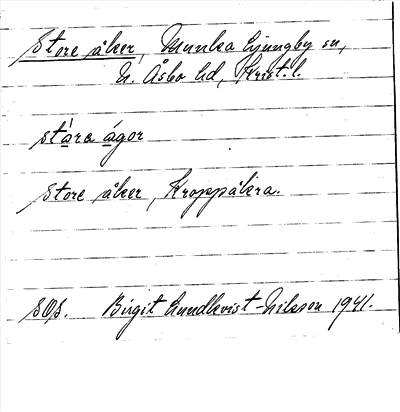 Store åker, Munka Ljungby sn,
N. Åsbo hd, Krist. l.
stára ágor
Store åker, Kroppåkra.
SOS. Birgit Lundkvist-Nilsson 1941.